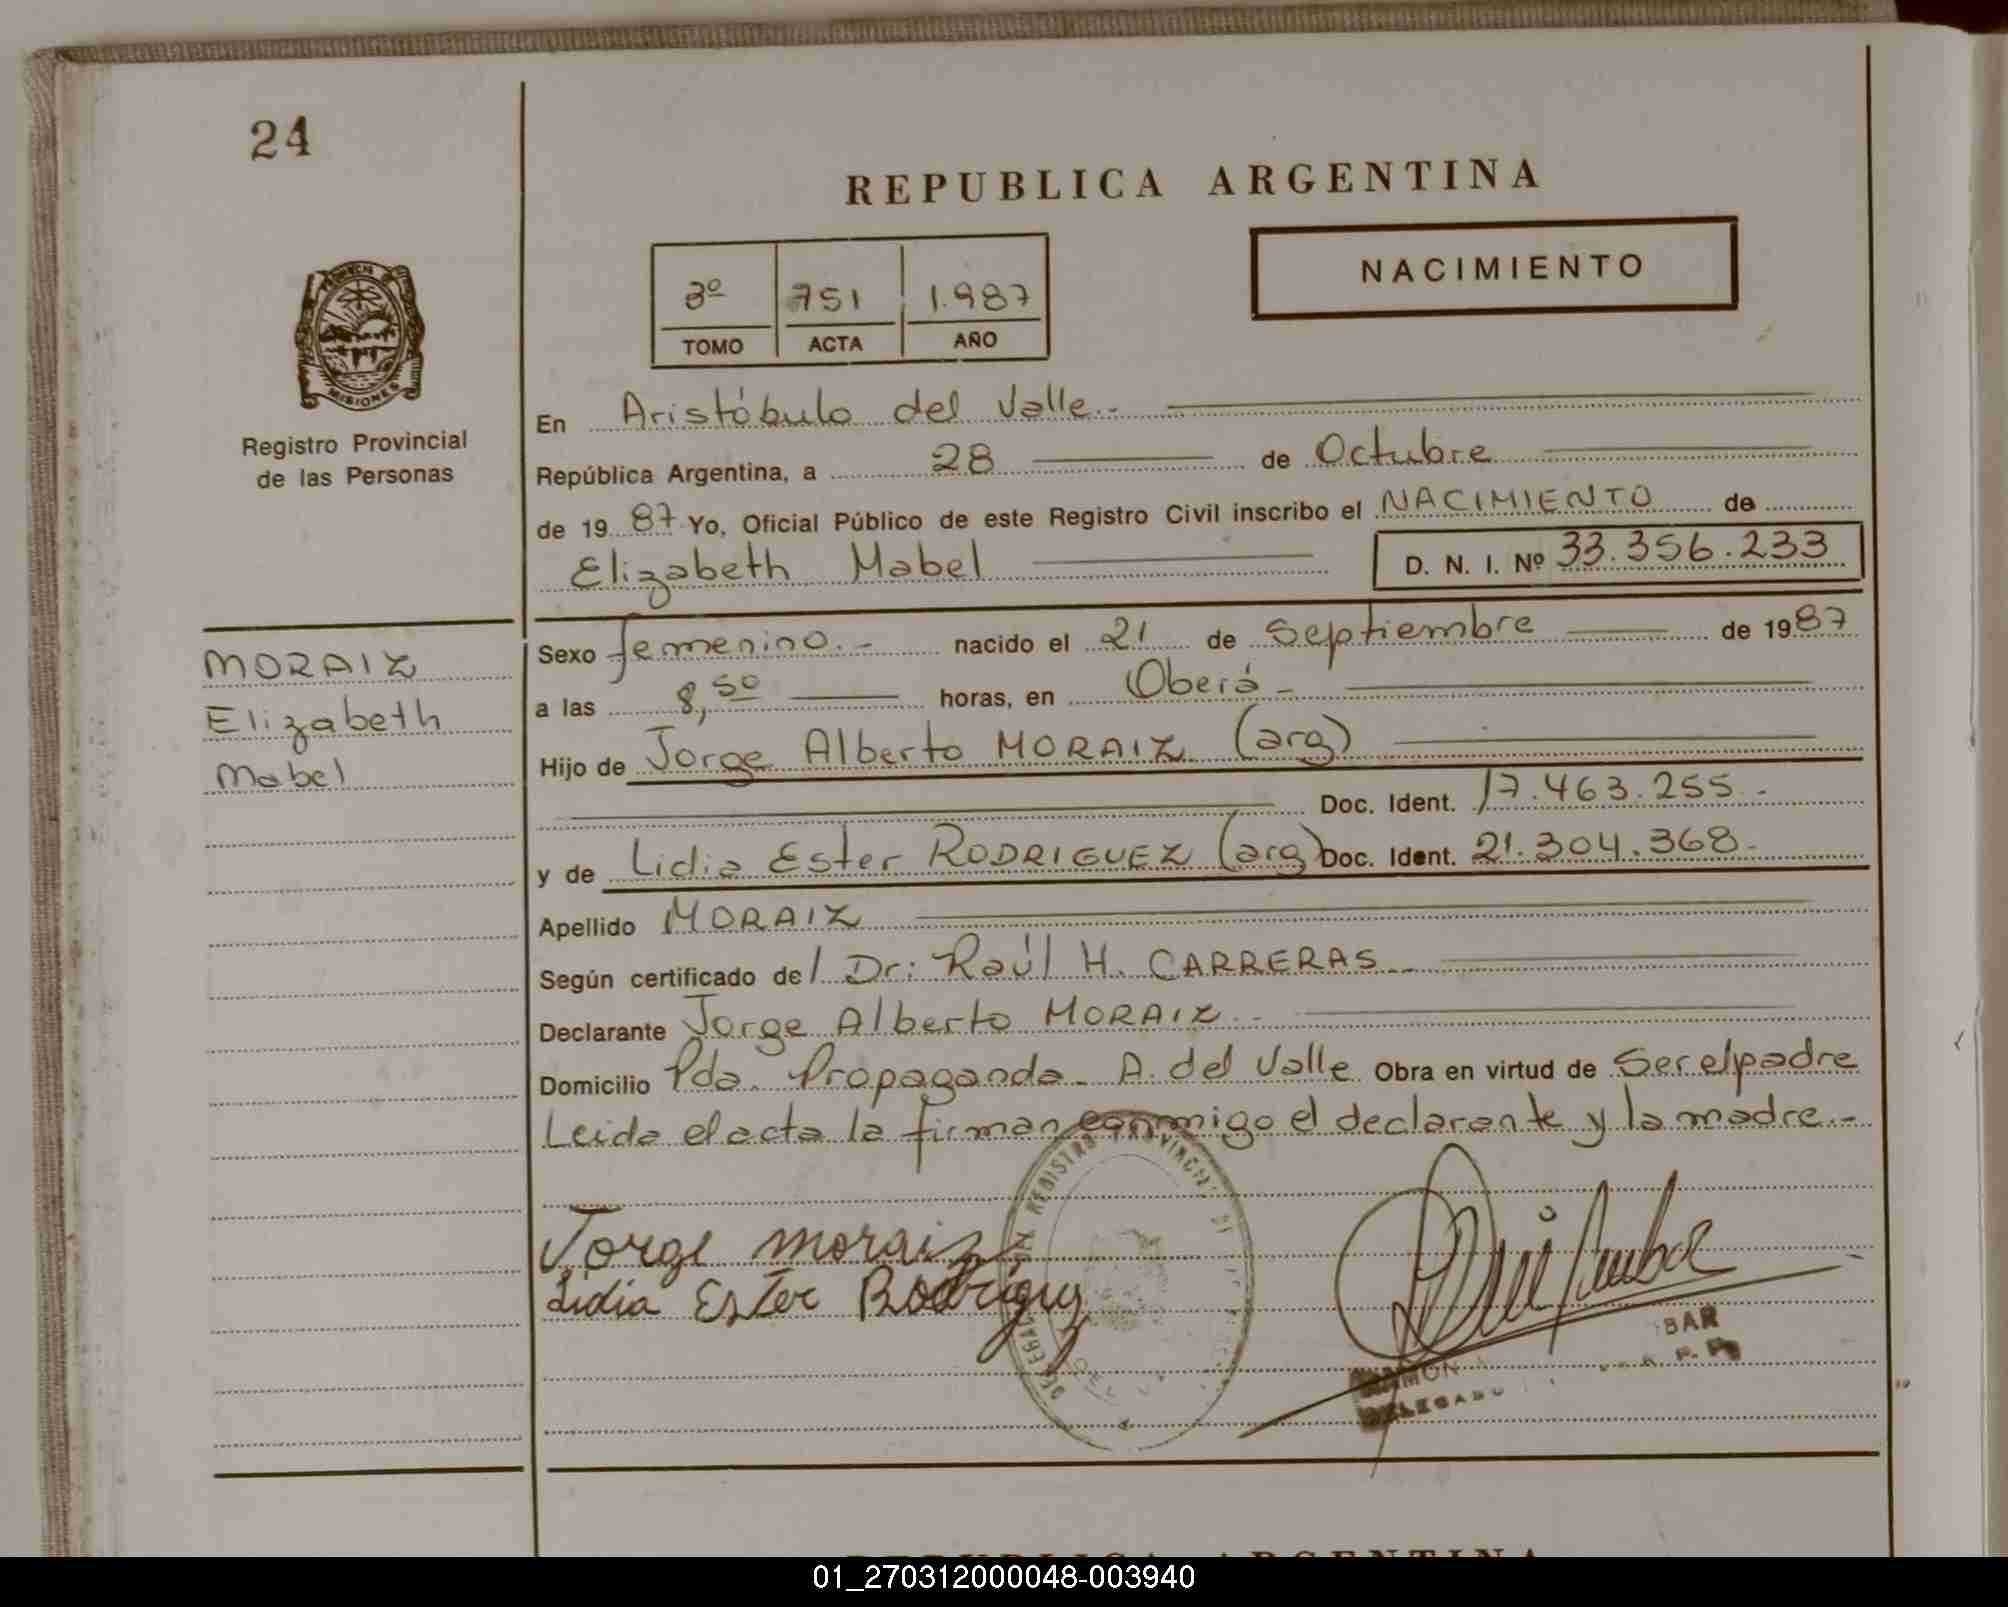 24
REPUBLICA ARGENTINA
NACIMIENTO
3º 751 1.987
TOMO ACTA AÑO
PROVINCIA
MISIONES
Registro Provincial
de las Personas
En Aristóbulo del Valle.-
República Argentina, a 28 de Octubre
de 19 87 Yo, Oficial Público de este Registro Civil inscribo el NACIMIENTO de
Elizabeth Mabel D. N. I. Nº 33.356.233
MORAIZ
Elizabeth
Mabel
Sexo femenino.- nacido el 21 de Septiembre de 19 87
a las 8,50 horas, en Oberá-
Hijo de Jorge Alberto MORAIZ (arg)
Doc. Ident. 17.463.255.-
y de Lidia Ester RODRIGUEZ (arg) Doc. Ident. 21.304.368.-
Apellido MORAIZ
Según certificado del Dr: Raúl H. CARRERAS
Declarante Jorge Alberto MORAIZ.-
Domicilio Pda. Propaganda- A. del Valle Obra en virtud de Ser el padre
Leida el acta la firman conmigo el declarante y la madre.-
Jorge moraiz
Lidia Ester Rodriguez
REGISTRO PROVINCIAL DE
RAMON
BAR
DELEGADO R. P.
REPUBLICA ARGENTINA
01_270312000048-003940